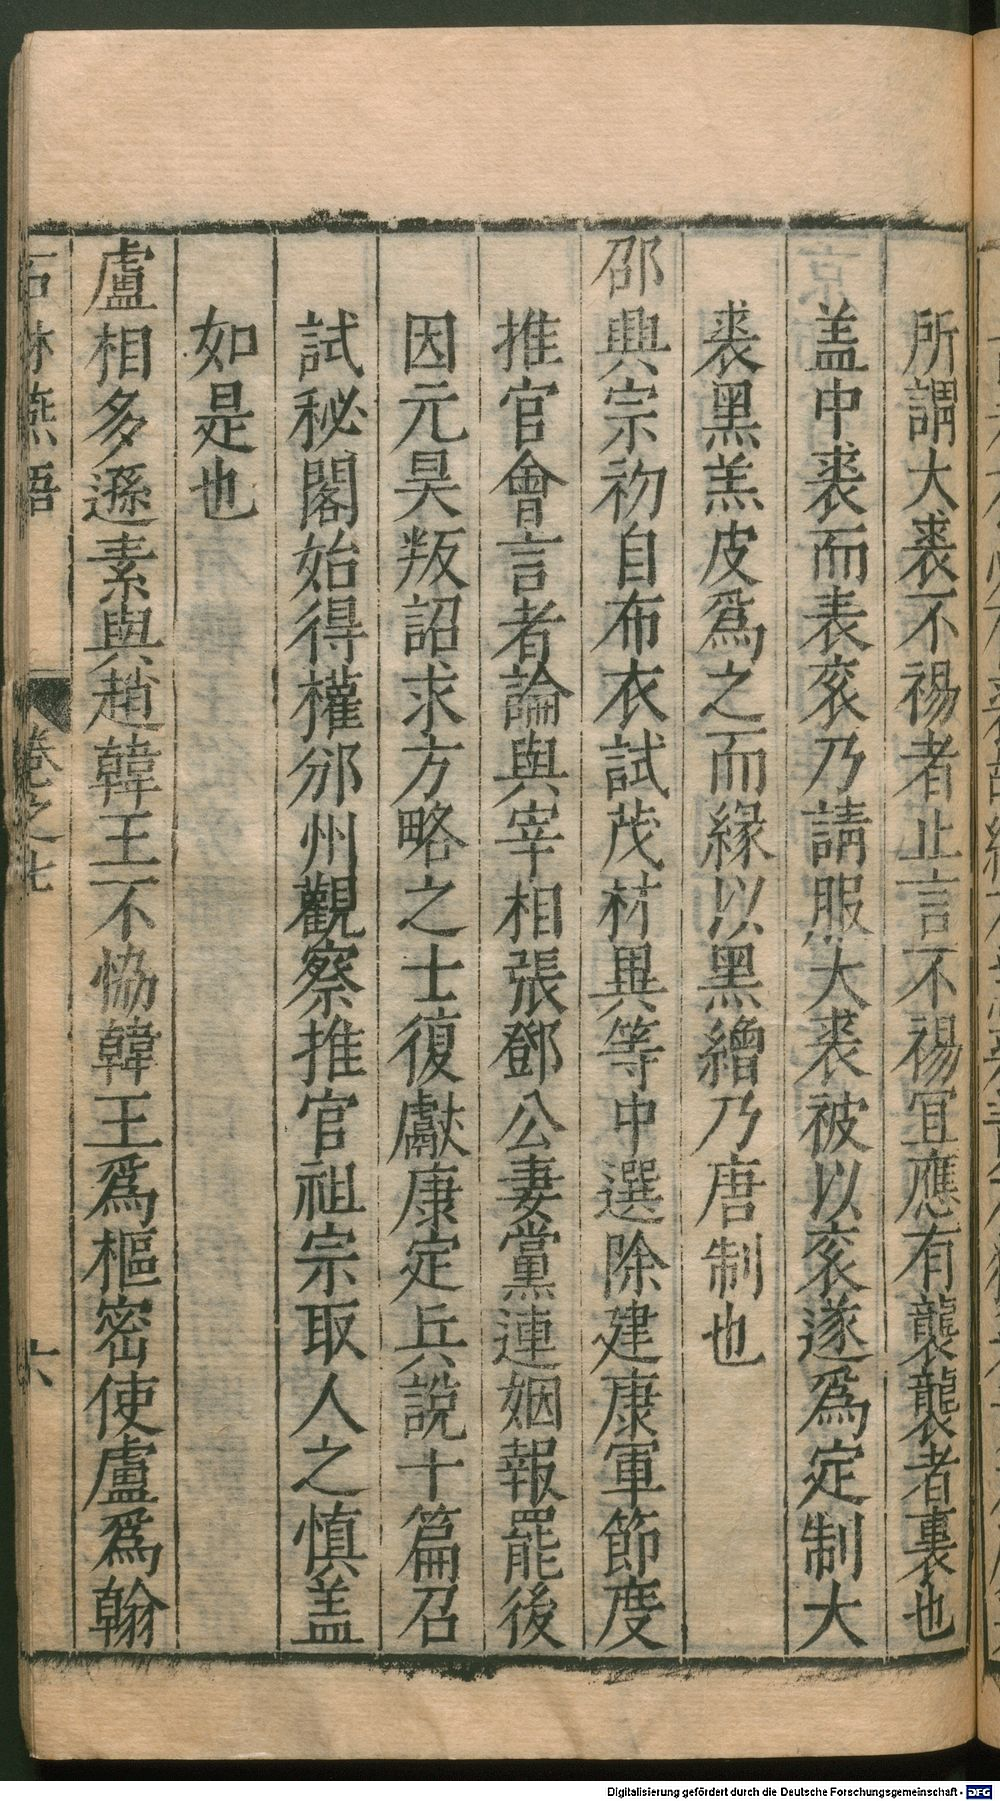 所謂大裘不裼者止言不裼宜應有襲襲者裏也
盖中裘而表衮乃請服大裘被以衮遂爲定制大
裘黑羔皮爲之而緣以黑繒乃唐制也
邵興宗初自布衣試茂材異等中選除建康軍節度
推官會言者論與宰相張鄧公妻黨連姻報罷後
因元昊叛詔求方略之士復獻康定兵說十篇召
試秘閣始得權邠州觀察推官祖宗取人之慎盖
如是也
盧相多遜素與趙韓王不恊韓王爲樞密使盧爲翰
石林燕語 卷之七 六
Digitalisierung gefördert durch die Deutsche Forschungsgemeinschaft - DFG